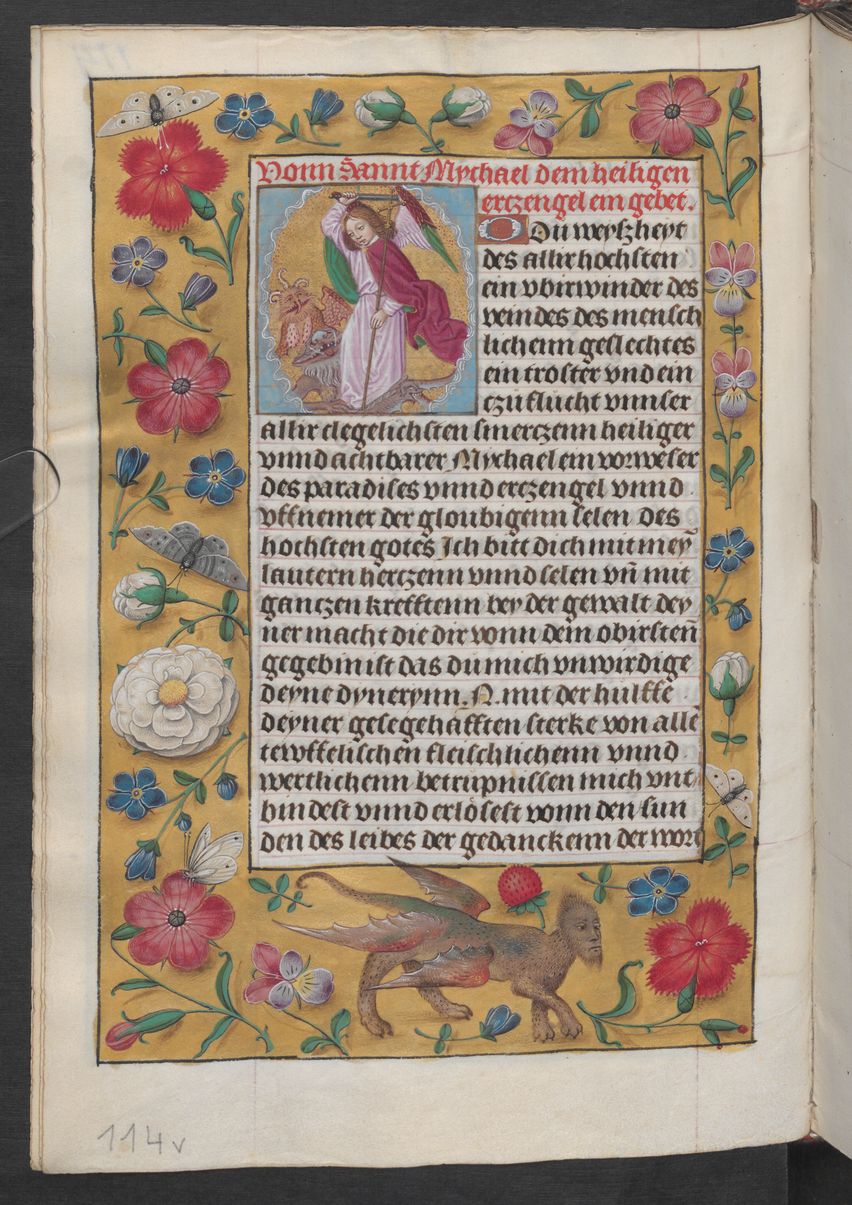 Vonn Sannt Mychael dem heiligen
erczengel ein gebet.
O Du weyszheyt
des allirhochsten
ein vbirwinder des
veindes des mensch
lichenn geslechtes
ein troster vnd ein
czuflucht vnnser
allir clegelichsten smerczenn heiliger
vnnd achtbarer Mychael ein vorweser
des paradises vnnd erczengel vnnd
vffnemer der gloubigenn selen des
hochsten gotes Ich bitt dich mit mey̅
lautern herczenn vnnd selen vn̅ mit
ganczen krefftenn bey der gewalt dey
ner macht die dir vonn dem obirsten̅
gegebin ist das du mich vnwirdige
deyne dynerynn .N. mit der hulffe
deyner gesegehafften sterke von alle̅
tewffelischen fleischlichenn vnnd
wertlichenn betrupnissen mich vnt
bindest vnnd erlösest vonn den sun
den des leibes der gedanckenn der wort
114v